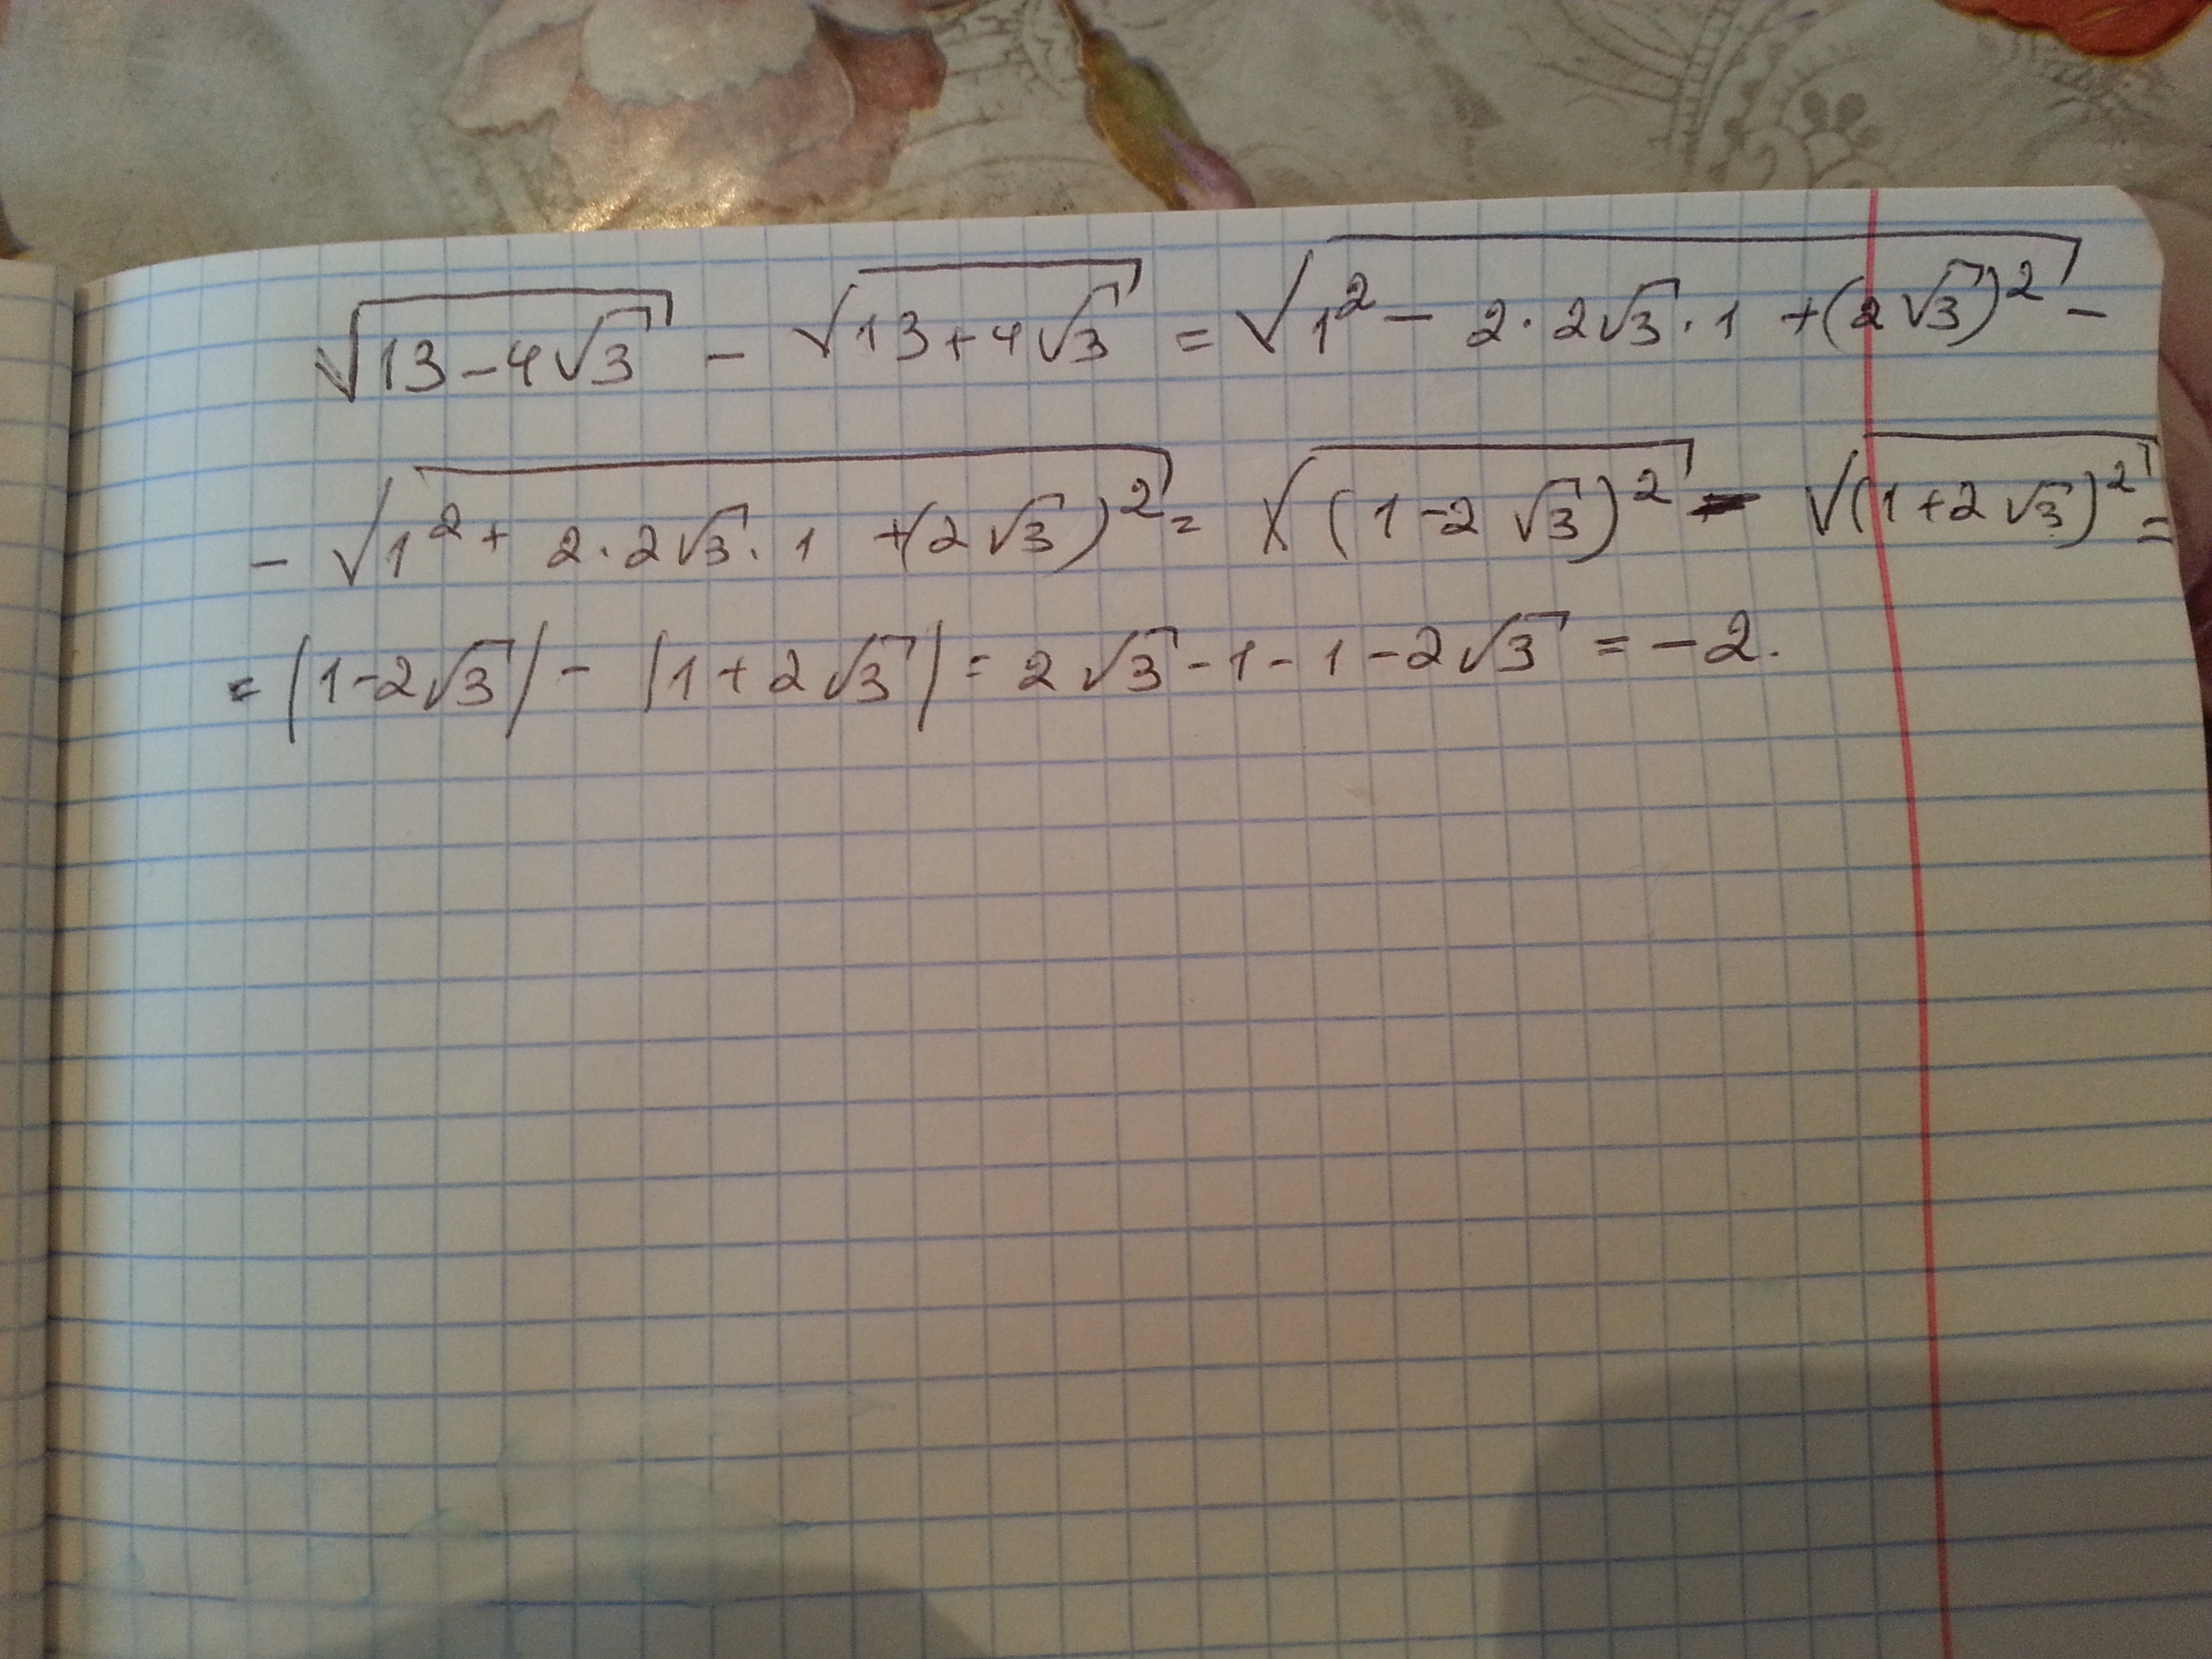 √(13-4√3) - √(13+4√3) = √(1² - 2·2√3·1 + (2√3)²) -
- √(1² + 2·2√3·1 + (2√3)²) = √((1-2√3)²) - √((1+2√3)²) =
= |1-2√3| - |1+2√3| = 2√3-1-1-2√3 = -2.